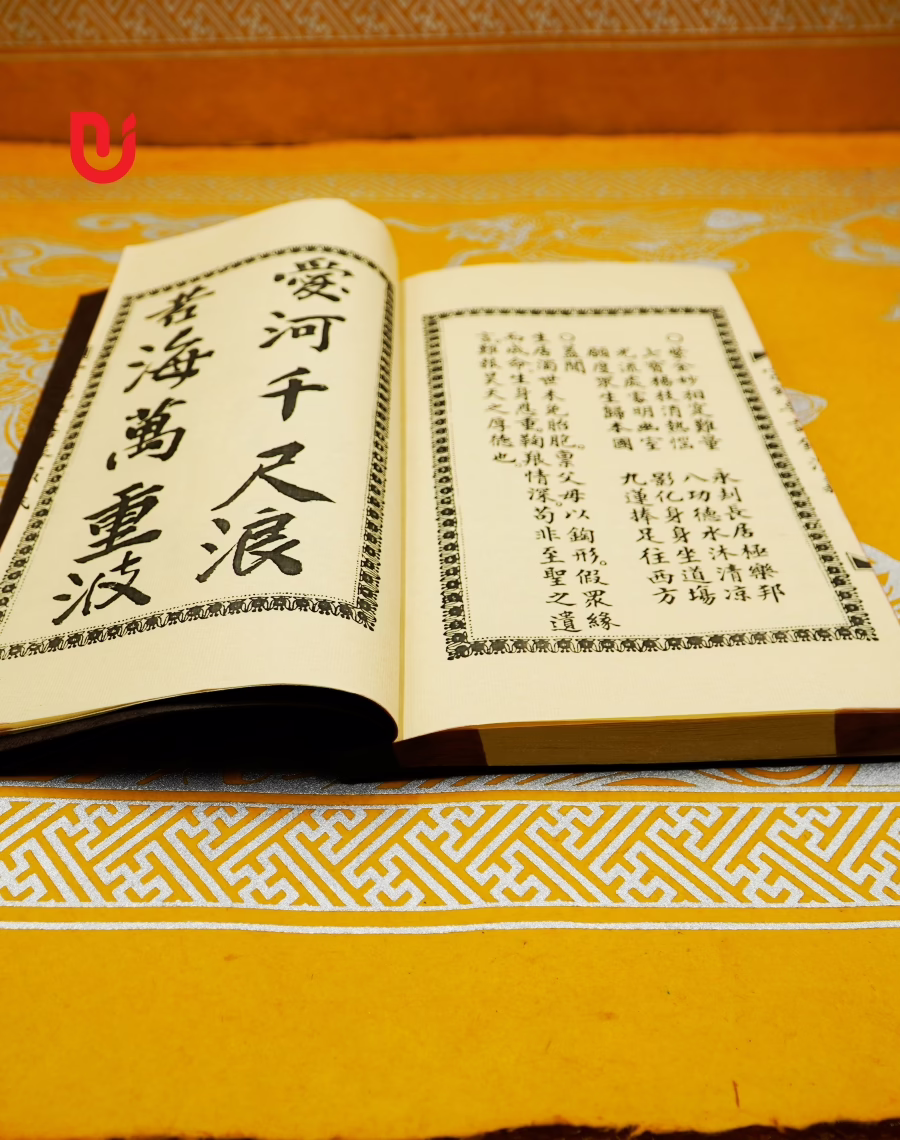 ○紫金妙相寔難量　永刦長居極樂邦
七寶楊枝消熱惱　八功德水沐清凉
光流處處明幽室　影化身身坐道場
願度眾生歸本國　九蓮捧足往西方
○蓋聞
生居濁世未免胎胞。禀父母以鉤形。假眾緣
而成命。生身恩重鞠艱情深。苟非至聖之遺
言難報昊天之厚德也。
愛河千尺浪
苦海萬重波